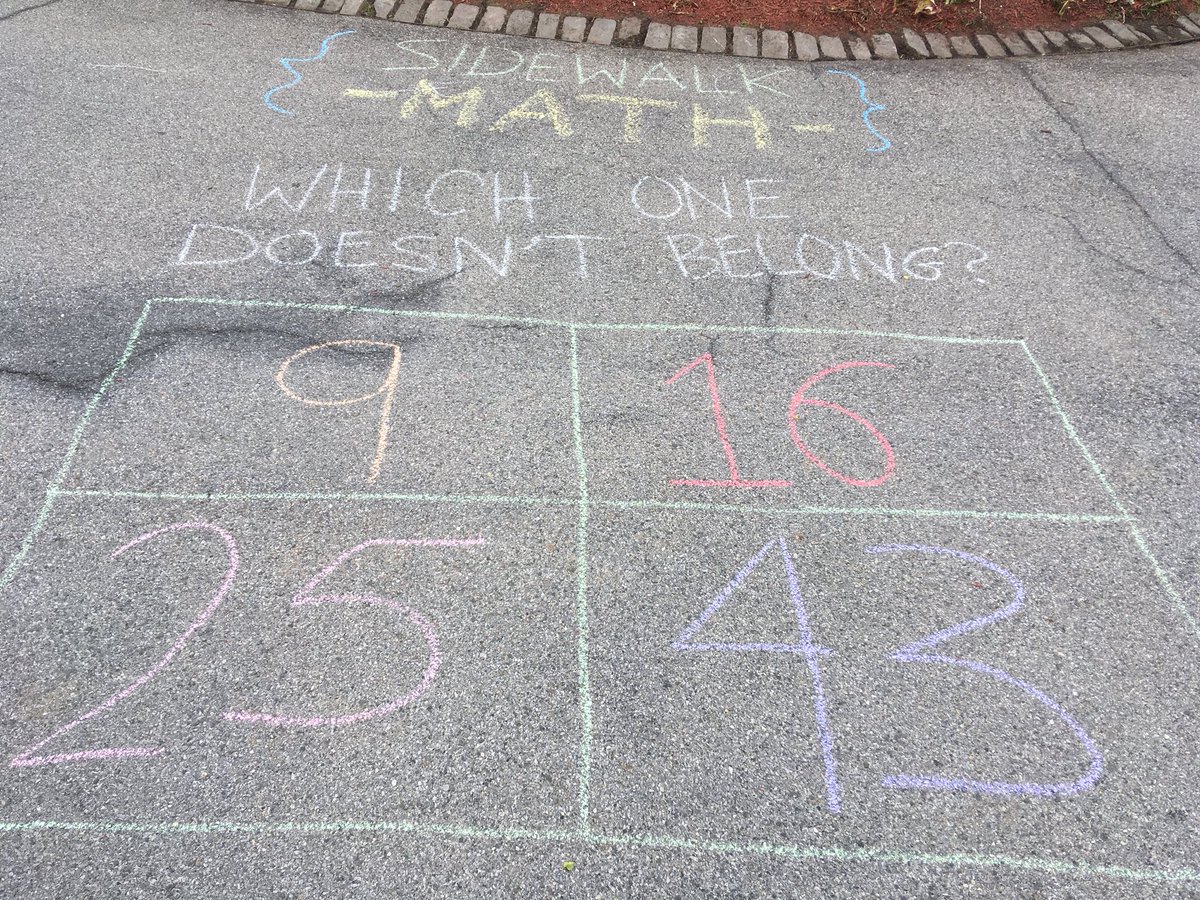 { SIDEWALK }
-MATH-
WHICH ONE
DOESN'T BELONG?
9 16
25 43